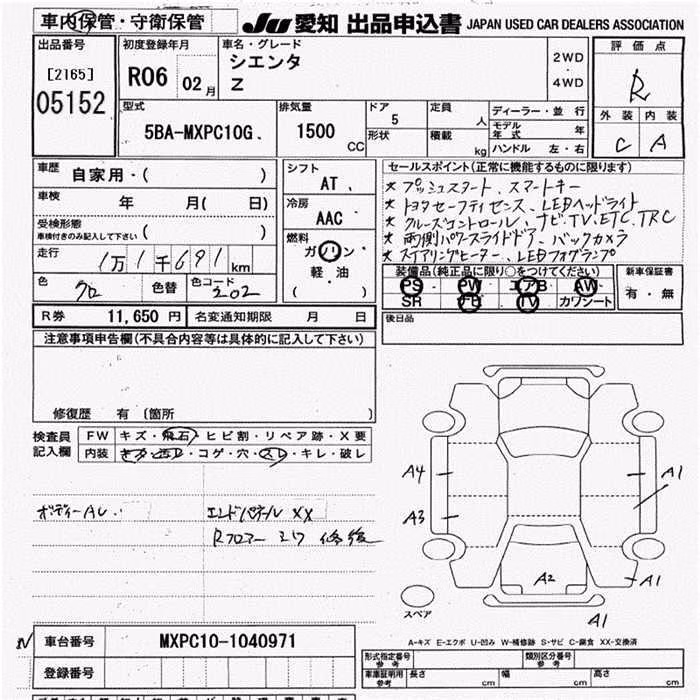 車内保管・守衛保管
JU 愛知 出品申込書 JAPAN USED CAR DEALERS ASSOCIATION
出品番号
[2165]
05152
初度登録年月
R06 02月
車名・グレード
シエンタ
Z
2WD
・
4WD
評価点
R
外装 内装
C A
型式
5BA-MXPC10G
排気量
1500 CC
ドア
5
形状
定員
人
積載
kg
ディーラー・並行
モデル年式 年
ハンドル 左・右
車歴
自家用・( )
車検
年 月( 日)
受検形態
車検付きのみ記入して下さい ( )
走行
1万1千691km
色
クロ
色替
色コード
202
シフト
AT
冷房
AAC
燃料
ガソリン
軽・油
( )
セールスポイント(正常に機能するものに限ります)
★ プッシュスタート、スマートキー
★ トヨタセーフティセンス、LEDヘッドライト
★ クルーズコントロール、ナビ、TV、ETC、TRC
★ 両側パワースライドドア、バックカメラ
★ ステアリングヒーター、LEDフォグランプ
装備品(純正品に限り○をつけてください)
PS PW エアB AW
SR TV カワシート
新車保証書
有・無
後日品
R券 11,650 円 名変通知期限 月 日
注意事項申告欄(不具合内容等は具体的に記入して下さい)
修復歴 有 〔箇所 〕
検査員
記入欄
FW キズ・飛石・ヒビ割・リペア跡・X要
内装 キズ・汚レ・コゲ・穴・スレ・キレ・破レ
ボディーAU
エンドパネル XX
Rフロアー ミワ 修復
A4
A3
A1
A2
A1
A1
スペア
A-キズ E-エクボ U-凹み W-補修跡 S-サビ C-腐食 XX-交換済
車台番号 MXPC10-1040971
登録番号
型式指定番号
参考
類別区分番号
参考
車庫証明用
参考
長さ cm 幅 cm 高さ cm